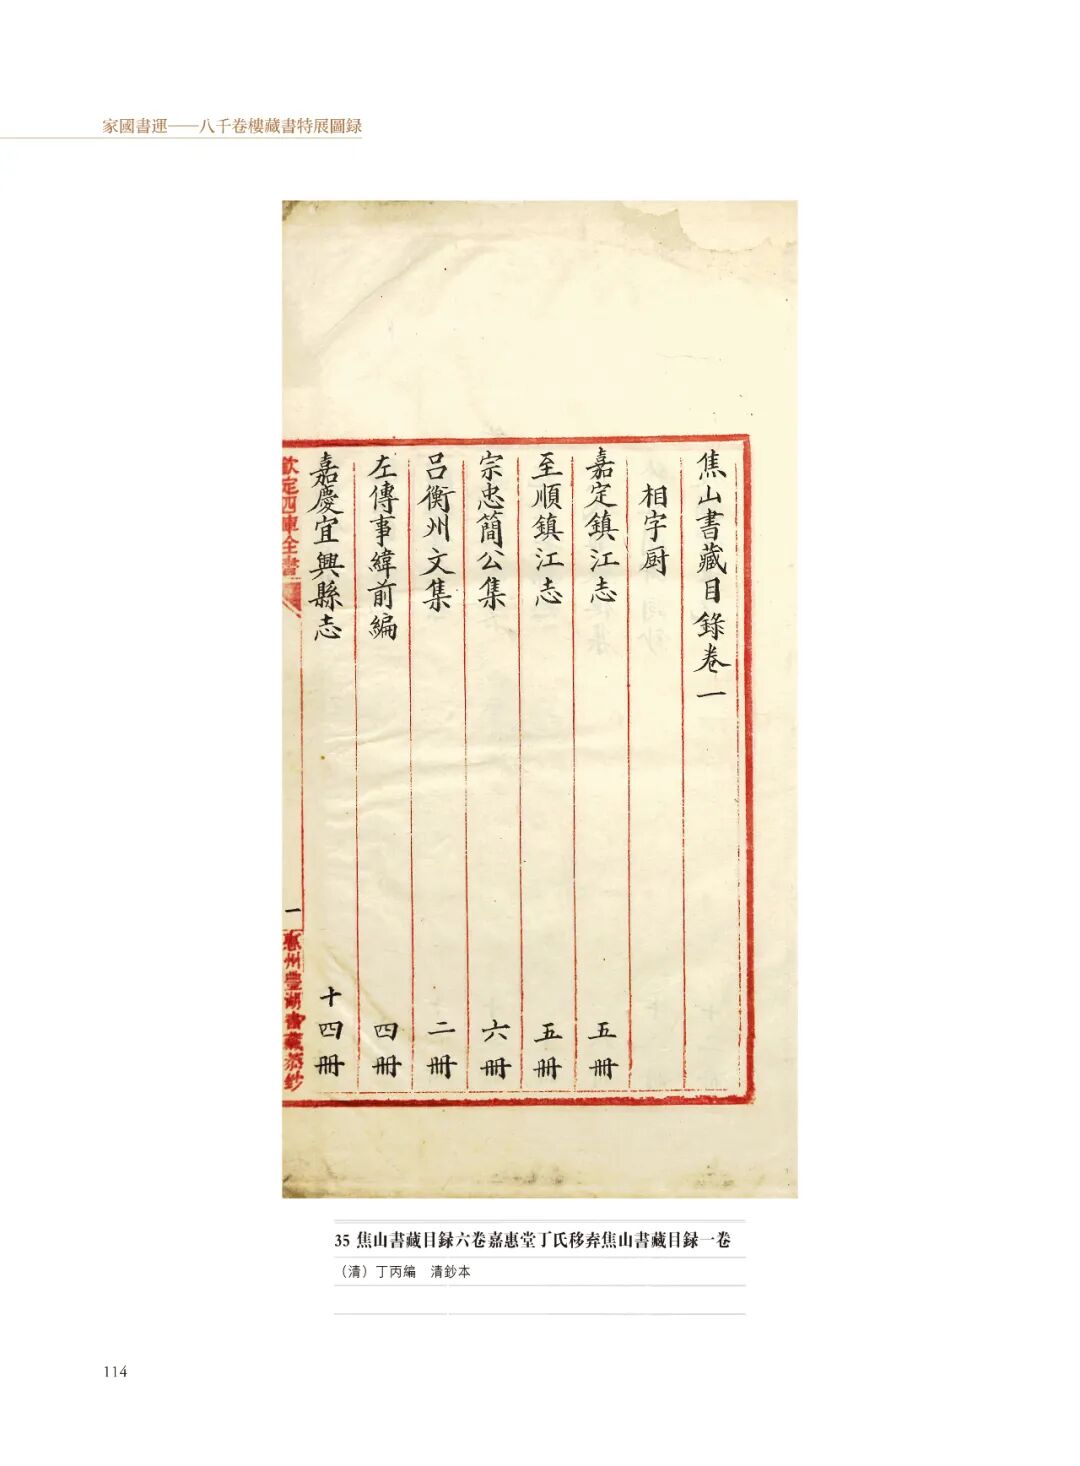 家國書運——八千卷樓藏書特展圖録
焦山書藏目錄卷一
相字厨
嘉定鎮江志 五冊
至順鎮江志 五冊
宗忠簡公集 六冊
呂衡州文集 二冊
左傳事緯前編 四冊
嘉慶宜興縣志 十四冊
欽定四庫全書
一
惠州豐湖書藏恭鈔
35 焦山書藏目録六卷嘉惠堂丁氏移弆焦山書藏目録一卷
（清）丁丙編 清鈔本
114